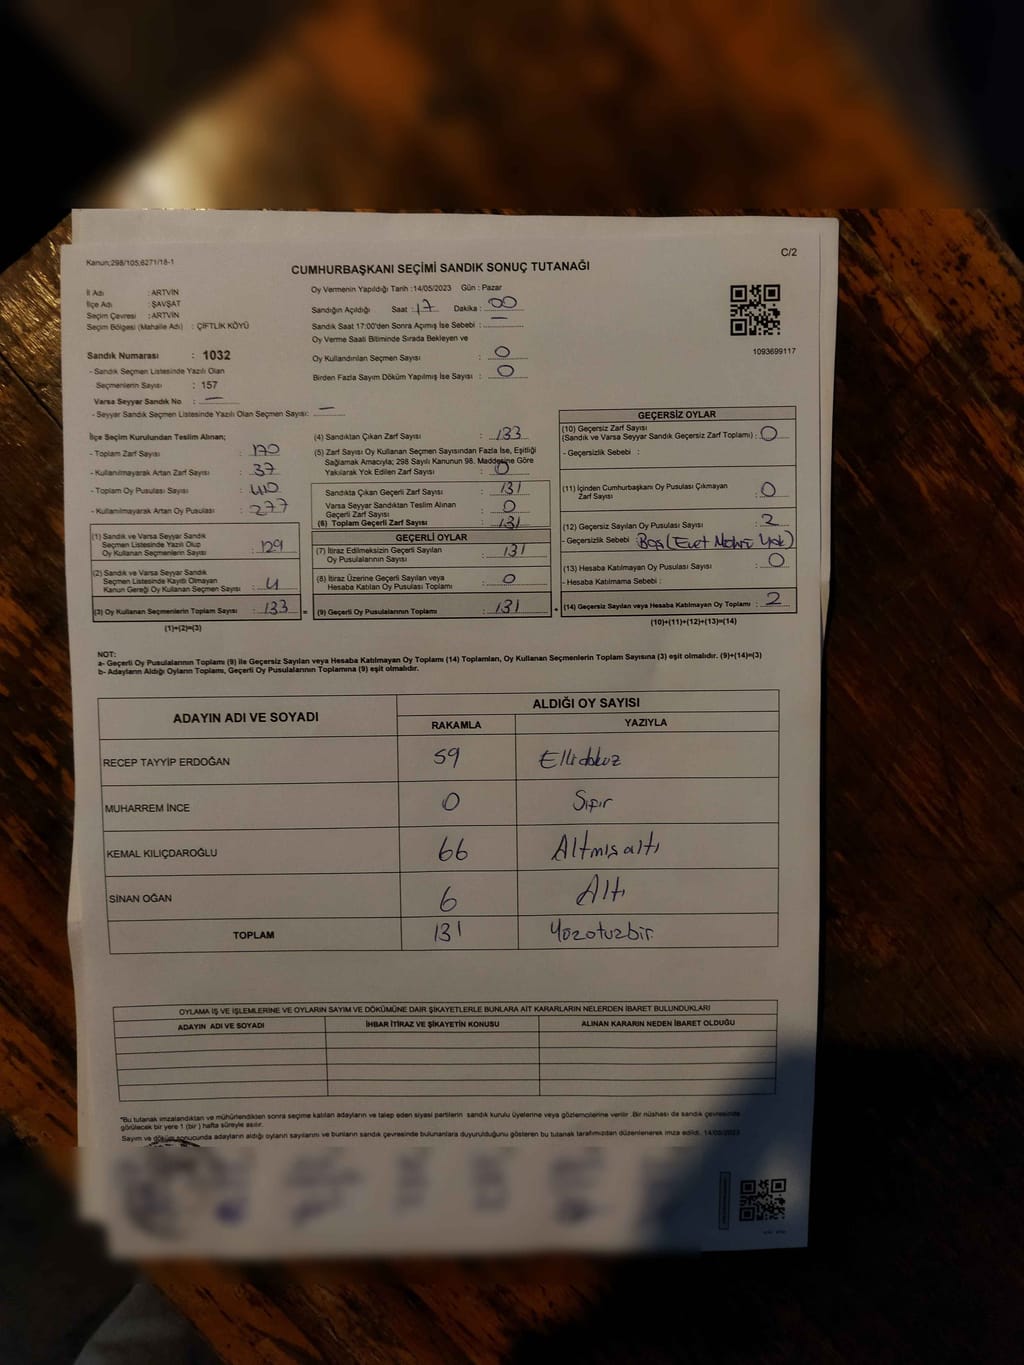 Kanun;298/105;6271/18-1
C/2
CUMHURBAŞKANI SEÇİMİ SANDIK SONUÇ TUTANAĞI
İl Adı : ARTVİN
İlçe Adı : ŞAVŞAT
Seçim Çevresi : ARTVİN
Seçim Bölgesi (Mahalle Adı) : ÇİFTLİK KÖYÜ
Sandık Numarası : 1032
- Sandık Seçmen Listesinde Yazılı Olan
Seçmenlerin Sayısı : 157
Varsa Seyyar Sandık No : —
- Seyyar Sandık Seçmen Listesinde Yazılı Olan Seçmen Sayısı: —
Oy Vermenin Yapıldığı Tarih :14/05/2023 Gün : Pazar
Sandığın Açıldığı Saat : 17 Dakika : 00
Sandık Saat 17:00'den Sonra Açımış İse Sebebi : —
Oy Verme Saali Bitiminde Sırada Bekleyen ve
Oy Kullandırılan Seçmen Sayısı : 0
Birden Fazla Sayım Döküm Yapılmış İse Sayısı : 0
1093699117
İlçe Seçim Kurulundan Teslim Alınan;
- Toplam Zarf Sayısı : 170
- Kullanılmayarak Artan Zarf Sayısı : 37
- Toplam Oy Pusulası Sayısı : 410
- Kullanılmayarak Artan Oy Pusulası : 277
(1) Sandık ve Varsa Seyyar Sandık
Seçmen Listesinde Yazılı Olup
Oy Kullanan Seçmenlerin Sayısı : 129
(2) Sandık ve Varsa Seyyar Sandık
Seçmen Listesinde Kayıtlı Olmayan
Kanun Gereği Oy Kullanan Seçmen Sayısı : 4
(3) Oy Kullanan Seçmenlerin Toplam Sayısı : 133 =
(1)+(2)=(3)
(4) Sandıktan Çıkan Zarf Sayısı : 133
(5) Zarf Sayısı Oy Kullanan Seçmen Sayısından Fazla İse, Eşitliği
Sağlamak Amacıyla; 298 Sayılı Kanunun 98. Maddesine Göre
Yakılarak Yok Edilen Zarf Sayısı : 0
Sandıkta Çıkan Geçerli Zarf Sayısı : 131
Varsa Seyyar Sandıktan Teslim Alınan
Geçerli Zarf Sayısı : 0
(6) Toplam Geçerli Zarf Sayısı : 131
GEÇERLİ OYLAR
(7) İtiraz Edilmeksizin Geçerli Sayılan
Oy Pusulalarının Sayısı : 131
(8) İtiraz Üzerine Geçerli Sayılan veya
Hesaba Katılan Oy Pusulası Toplamı : 0
(9) Geçerli Oy Pusulalarının Toplamı : 131 +
GEÇERSİZ OYLAR
(10) Geçersiz Zarf Sayısı
(Sandık ve Varsa Seyyar Sandık Geçersiz Zarf Toplamı) : 0
- Geçersizlik Sebebi :
(11) İçinden Cumhurbaşkanı Oy Pusulası Çıkmayan
Zarf Sayısı : 0
(12) Geçersiz Sayılan Oy Pusulası Sayısı : 2
- Geçersizlik Sebebi : Boş (Evet Mührü Yok)
(13) Hesaba Katılmayan Oy Pusulası Sayısı : 0
- Hesaba Katılmama Sebebi :
(14) Geçersiz Sayılan veya Hesaba Katılmayan Oy Toplamı : 2
(10)+(11)+(12)+(13)=(14)
NOT:
a- Geçerli Oy Pusulalarının Toplamı (9) ile Geçersiz Sayılan veya Hesaba Katılmayan Oy Toplamı (14) Toplamları, Oy Kullanan Seçmenlerin Toplam Sayısına (3) eşit olmalıdır. (9)+(14)=(3)
b- Adayların Aldığı Oyların Toplamı, Geçerli Oy Pusulalarının Toplamına (9) eşit olmalıdır.
ADAYIN ADI VE SOYADI ALDIĞI OY SAYISI
RAKAMLA YAZIYLA
RECEP TAYYİP ERDOĞAN 59 Ellidokuz
MUHARREM İNCE 0 Sıfır
KEMAL KILIÇDAROĞLU 66 Altmışaltı
SİNAN OĞAN 6 Altı
TOPLAM 131 Yüzotuzbir
OYLAMA İŞ VE İŞLEMLERİNE VE OYLARIN SAYIM VE DÖKÜMÜNE DAİR ŞİKAYETLERLE BUNLARA AİT KARARLARIN NELERDEN İBARET BULUNDUKLARI
ADAYIN ADI VE SOYADI İHBAR İTİRAZ VE ŞİKAYETİN KONUSU ALINAN KARARIN NEDEN İBARET OLDUĞU
*Bu tutanak imzalandıktan ve mühürlendikten sonra seçime katılan adayların ve talep eden siyasi partilerin sandık kurulu üyelerine veya gözlemcilerine verilir. Bir nüshası da sandık çevresinde
görülecek bir yere 1 (bir ) hafta süreyle asılır.
Sayım ve döküm sonucunda adayların aldığı oyların sayılarını ve bunların sandık çevresinde bulunanlara duyurulduğunu gösteren bu tutanak tarafımızdan düzenlenerek imza edildi. 14/05/2023